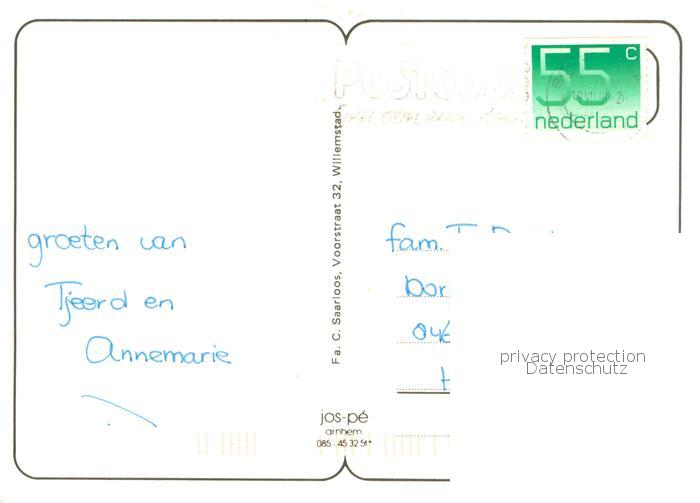 groeten van
Tjeerd en
Annemarie
Fa. C. Saarloos, Voorstraat 32, Willemstad.
jos-pé
arnhem
085 - 45 32 51*
POSTCODE
55 c
nederland
fam.
privacy protection
Datenschutz